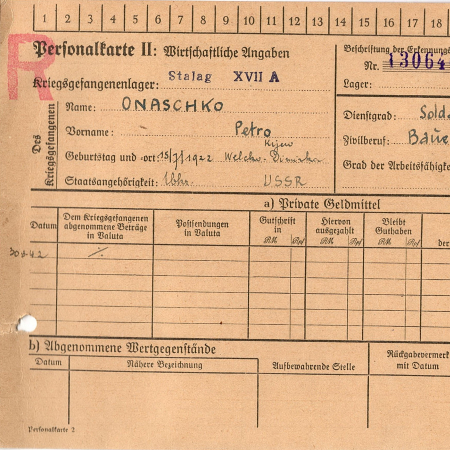 1 2 3 4 5 6 7 8 9 10 11 12 13 14 15 16 17 18
R
Personalkarte II: Wirtschaftliche Angaben
Beschriftung der Erkennungs
Nr. 13064
Kriegsgefangenenlager: Stalag XVII A
Lager:
Des Kriegsgefangenen
Name: ONASCHKO
Dienstgrad: Sold
Vorname: Petro
Zivilberuf: Baue
Kijew
Geburtstag und -ort: 15/7/1922 Welchw.
Grad der Arbeitsfähigke
Staatsangehörigkeit: Ukr. USSR
a) Private Geldmittel
Datum
Dem Kriegsgefangenen abgenommene Beträge in Valuta
Postsendungen in Valuta
Gutschrift in
RM. Rpf
Hiervon ausgezahlt
RM. Rpf
Bleibt Guthaben
RM. Rpf
der
42 ./.
b) Abgenommene Wertgegenstände
Datum
Nähere Bezeichnung
Aufbewahrende Stelle
Rückgabevermerk mit Datum
Personalkarte 2